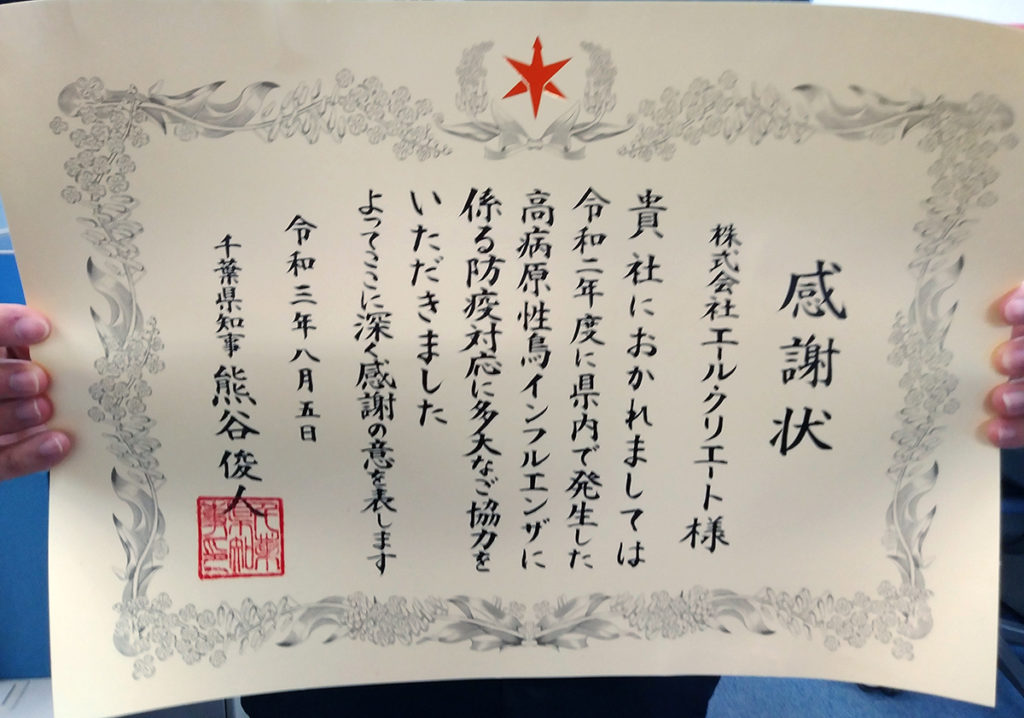 感謝状
株式会社エール・クリエート様
貴社におかれましては
令和二年度に県内で発生した
高病原性鳥インフルエンザに
係る防疫対応に多大なご協力を
いただきました
よってここに深く感謝の意を表します
令和三年八月五日
千葉県知事 熊谷俊人